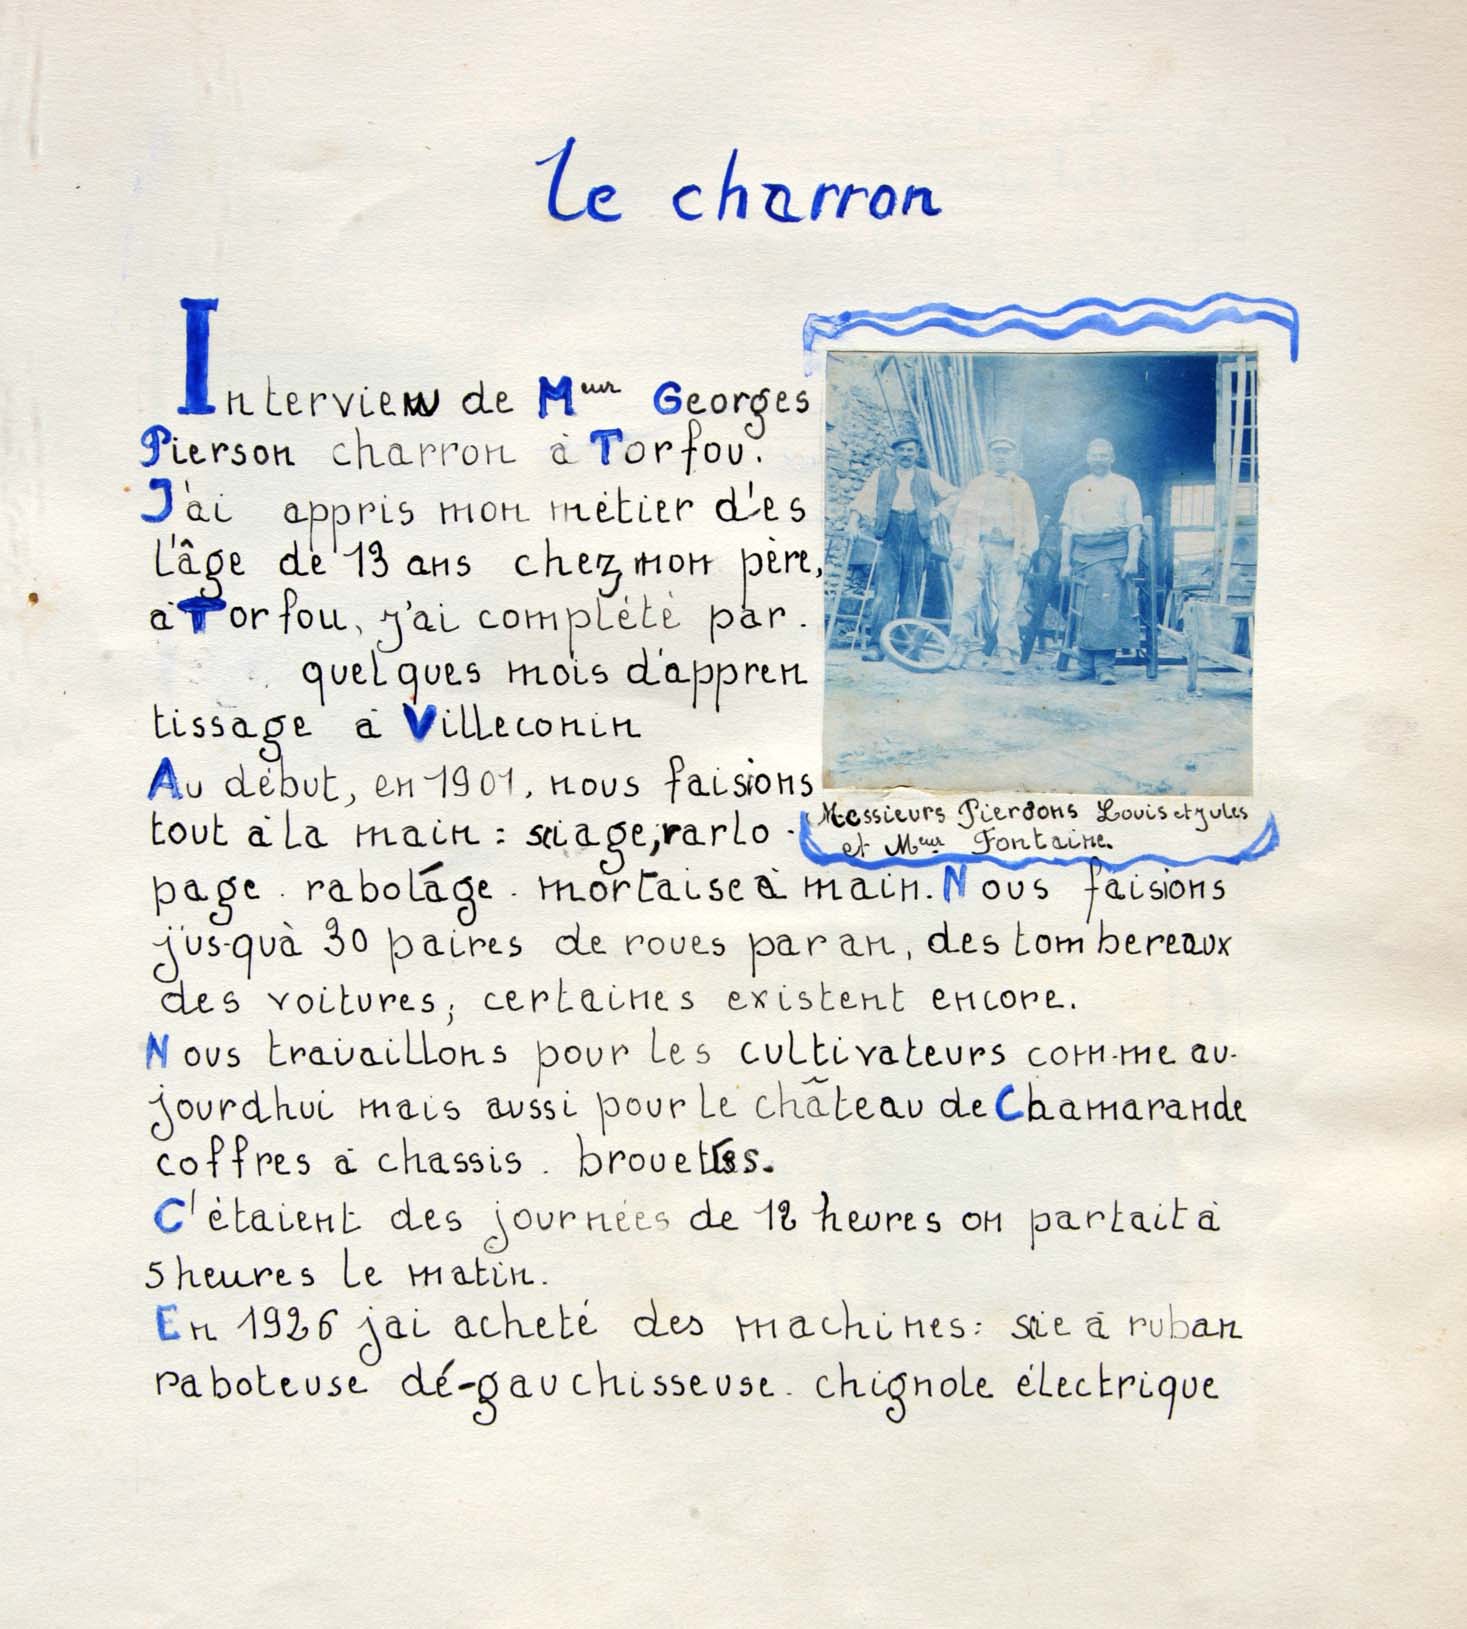 le charron
Interview de Meur Georges
Pierson charron à Torfou.
J'ai appris mon métier d'es
l'âge de 13 ans chez mon père,
à Torfou, j'ai complété par.
quelques mois d'appren
tissage à Villeconin
Au début, en 1901, nous faisions
tout à la main : sciage, varlo-
page. rabotage. mortaise à main. Nous faisions
jus-quà 30 paires de roues par an, des tombereaux
des voitures, certaines existent encore.
Nous travaillons pour les cultivateurs com-me au-
jourdhui mais aussi pour le château de Chamarande
coffres à chassis. brouettes.
C'étaient des journées de 12 heures on partait à
5 heures le matin.
En 1926 jai acheté des machines: scie à ruban
raboteuse dé-gauchisseuse. chignole électrique
Messieurs Piersons Louis et Jules
et Meur Fontaine.